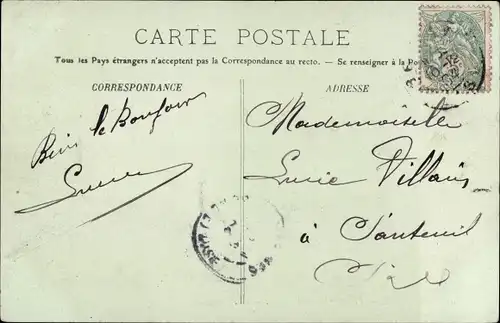 CARTE POSTALE
Tous les Pays étrangers n'acceptent pas la Correspondance au recto. — Se renseigner à la
CORRESPONDANCE
ADRESSE
Bien le Bonjour
Mademoiselle
Lucie Villain
à Santeuil